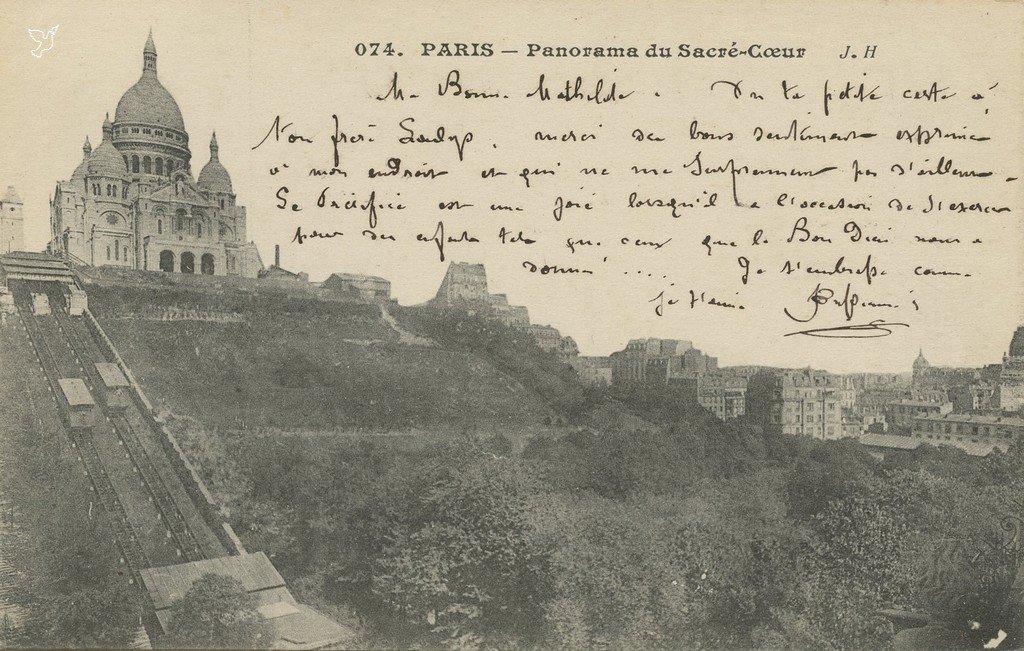 074. PARIS — Panorama du Sacré-Cœur J. H
Ma Bonne Mathilde. Vu ta petite carte à
ton frère, merci des bons sentiments exprimés
à mon endroit et qui ne me surprennent pas d'ailleurs.
Le sacrifice est une joie lorsqu'il a l'occasion de s'exercer
pour des enfants tels que ceux que le Bon Dieu nous a
donné ....  Je t'embrasse comme
je t'aime